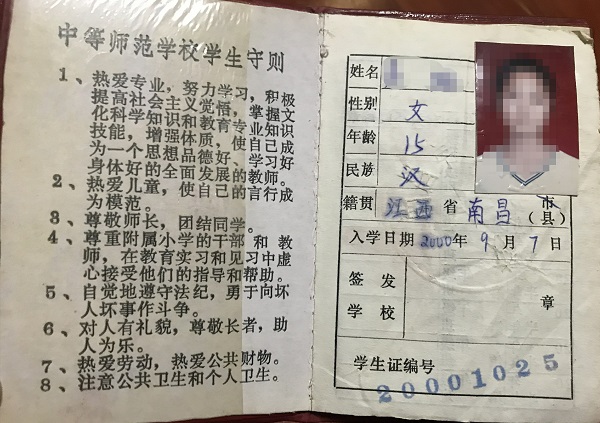 中等师范学校学生守则
1、热爱专业，努力学习，积极
提高社会主义觉悟，掌握文
化科学知识和教育专业知识
技能，增强体质，使自己成
为一个思想品德好、学习好
身体好的全面发展的教师。
2、热爱儿童，使自己的言行成
为模范。
3、尊敬师长，团结同学。
4、尊重附属小学的干部和教
师，在教育实习和见习中虚
心接受他们的指导和帮助。
5、自觉地遵守法纪，勇于向坏
人坏事作斗争。
6、对人有礼貌，尊敬长者，助
人为乐。
7、热爱劳动，热爱公共财物。
8、注意公共卫生和个人卫生。
姓名
性别 女
年龄 15
民族 汉
籍贯 江西 省 南昌 市（县）
入学日期 2000年 9 月 7 日
签发
学校 章
学生证编号
20001025